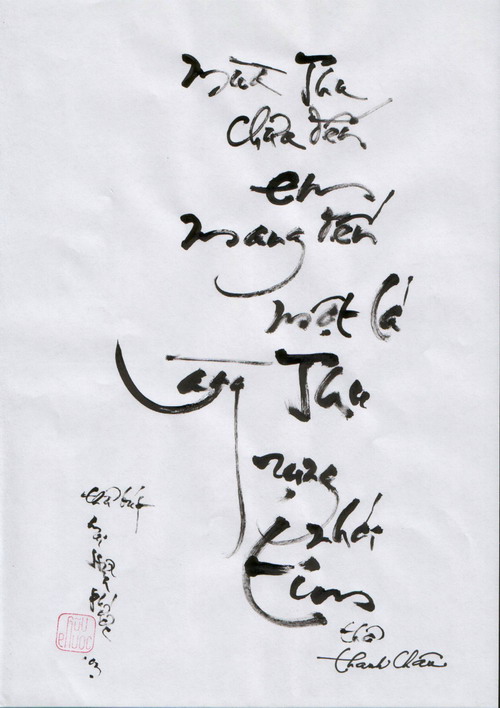 Mùa Thu
chưa đến
em
mang đến
một lá
vàng Thu
rụng
nhói
tim
thơ
Thanh Châu
thủ bút
HỮU
PHƯỚC